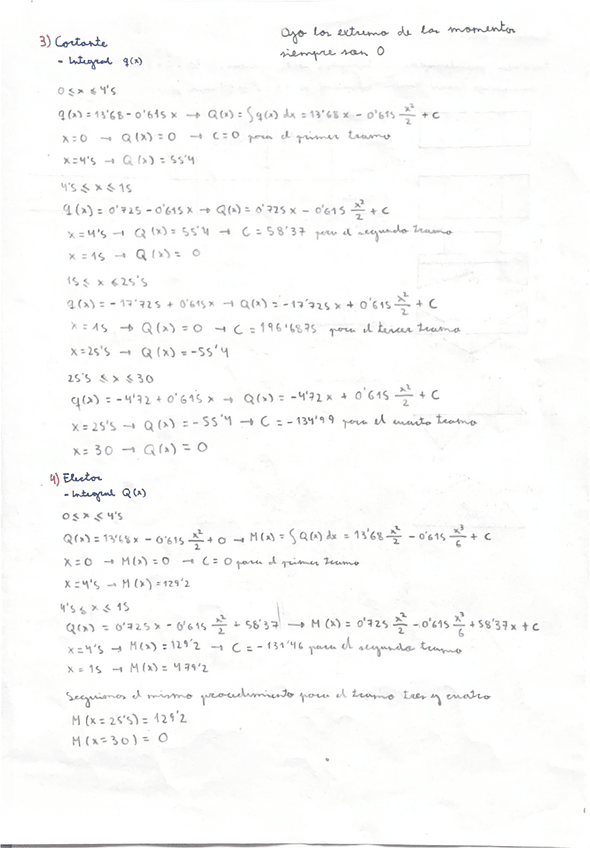 Ojo los extremo de los momentos
siempre son 0
3) Cortante
- Integral q(x)
0 ≤ x ≤ 4's
q(x) = 13'68 - 0'615 x → Q(x) = ∫ q(x) dx = 13'68 x - 0'615 x²/2 + C
x = 0 → Q(x) = 0 → C = 0 para el primer tramo
x = 4's → Q(x) = 55'4
4's ≤ x ≤ 15
q(x) = 0'725 - 0'615 x → Q(x) = 0'725 x - 0'615 x²/2 + C
x = 4's → Q(x) = 55'4 → C = 58'37 para el segundo tramo
x = 15 → Q(x) = 0
15 ≤ x ≤ 25's
q(x) = -17'725 + 0'615 x → Q(x) = -17'725 x + 0'615 x²/2 + C
x = 15 → Q(x) = 0 → C = 196'6875 para el tercer tramo
x = 25's → Q(x) = -55'4
25's ≤ x ≤ 30
q(x) = -4'72 + 0'615 x → Q(x) = -4'72 x + 0'615 x²/2 + C
x = 25's → Q(x) = -55'4 → C = -134'99 para el cuarto tramo
x = 30 → Q(x) = 0
4) Flector
- Integral Q(x)
0 ≤ x ≤ 4's
Q(x) = 13'68 x - 0'615 x²/2 + 0 → M(x) = ∫ Q(x) dx = 13'68 x²/2 - 0'615 x³/6 + C
x = 0 → M(x) = 0 → C = 0 para el primer tramo
x = 4's → M(x) = 129'2
4's ≤ x ≤ 15
Q(x) = 0'725 x - 0'615 x²/2 + 58'37 → M(x) = 0'725 x²/2 - 0'615 x³/6 + 58'37 x + C
x = 4's → M(x) = 129'2 → C = -131'46 para el segundo tramo
x = 15 → M(x) = 479'2
Seguimos el mismo procedimiento para el tramo tres y cuatro
M(x = 25's) = 129'2
M(x = 30) = 0